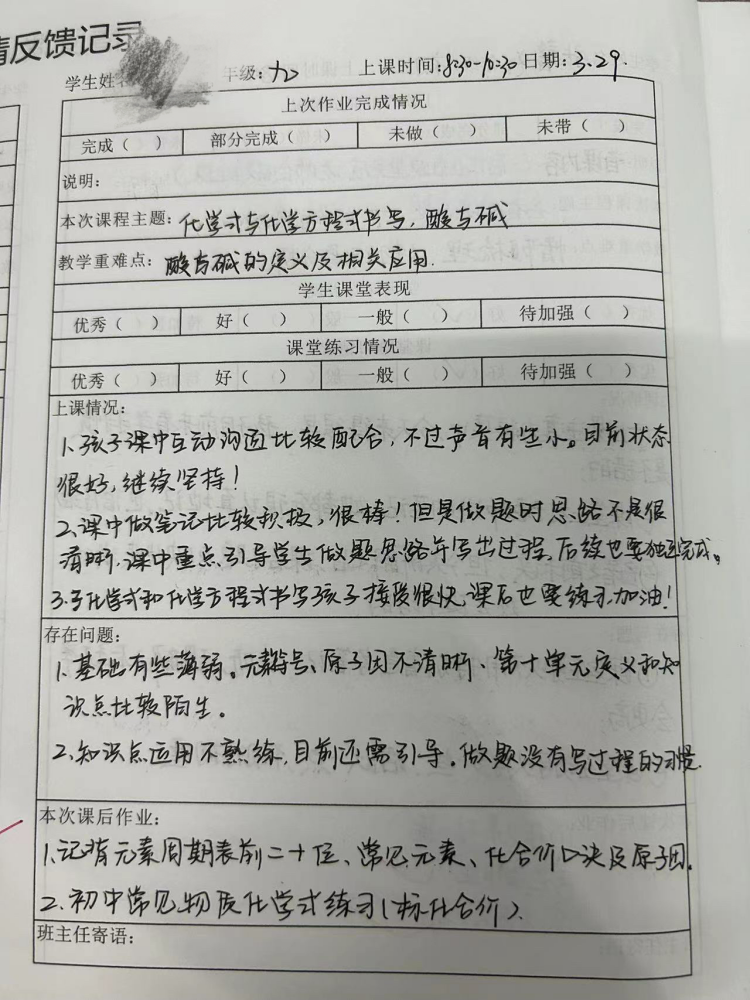 情反馈记录
学生姓名 年级:九 上课时间:8:30-10:30 日期:3.29.
上次作业完成情况
完成( ) 部分完成( ) 未做( ) 未带( )
说明:
本次课程主题:化学式与化学方程式书写,酸与碱
教学重难点:酸与碱的定义及相关应用.
学生课堂表现
优秀( ) 好( ) 一般( ) 待加强( )
课堂练习情况
优秀( ) 好( ) 一般( ) 待加强( )
上课情况:
1.孩子课中互动沟通比较配合,不过声音有些小。目前状态
很好,继续坚持!
2.课中做笔记比较积极,很棒!但是做题时思路不是很
清晰,课中重点引导学生做题思路并写出过程,后续也要独立完成。
3.写化学式和化学方程式书写孩子接受很快,课后也要练习,加油!
存在问题:
1.基础有些薄弱。元素符号、原子团不清晰、第十单元定义和知
识点比较陌生。
2.知识点运用不熟练,目前还需引导。做题没有写过程的习惯.
本次课后作业:
1.记背元素周期表前二十位、常见元素、化合价口决及原子团.
2.初中常见物质化学式练习(标化合价).
班主任寄语: